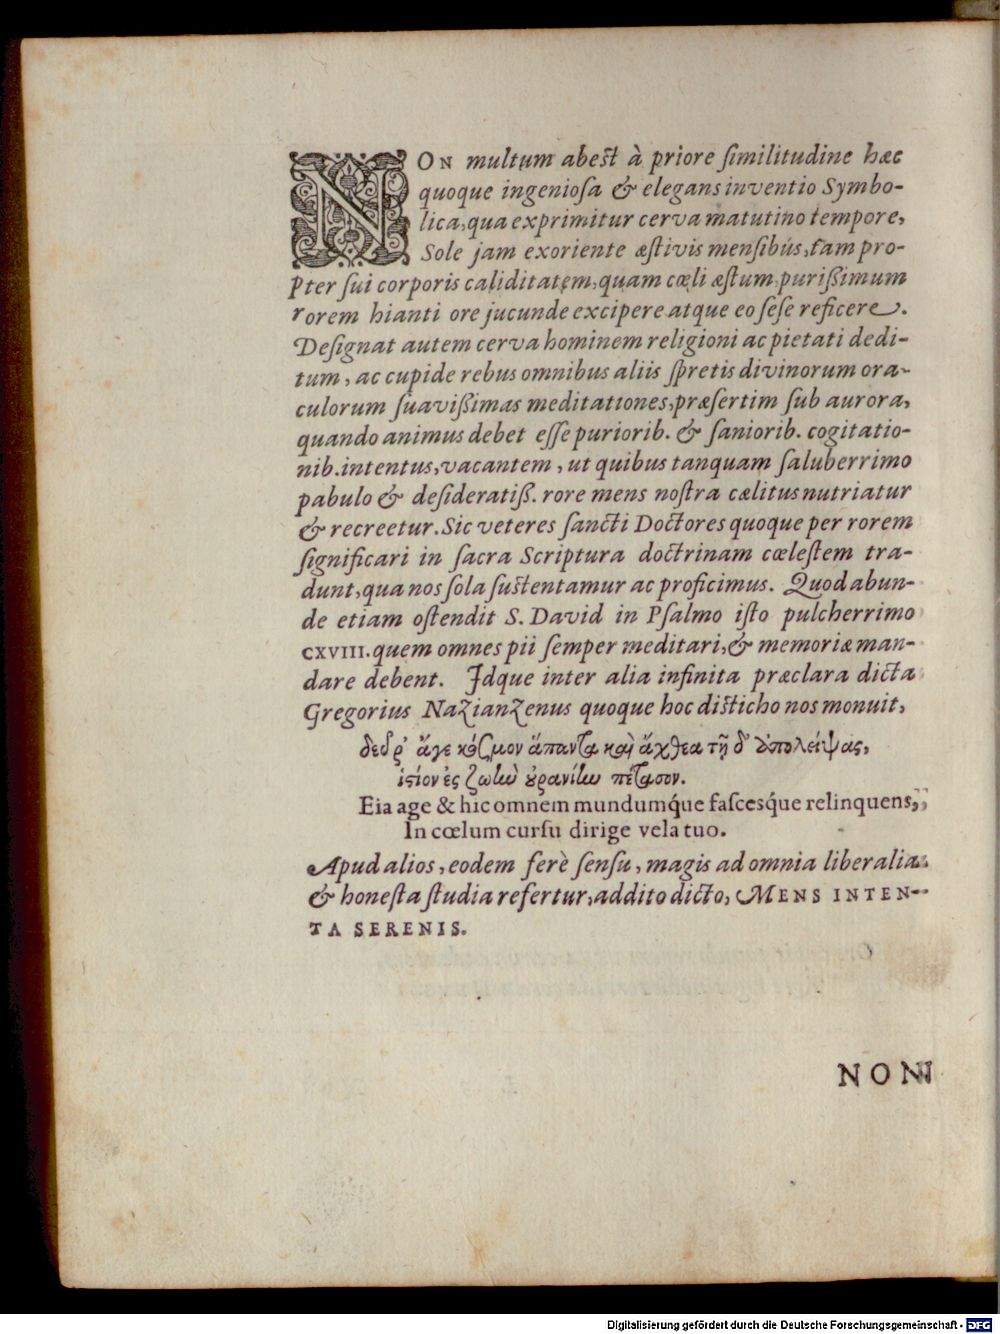 NON multum abest à priore similitudine hæc
quoque ingeniosa & elegans inventio Symbo-
lica, qua exprimitur cerva matutino tempore,
Sole jam exoriente æstivis mensibus, tam pro-
pter sui corporis caliditatem, quam cœli æstum, purißimum
rorem hianti ore jucunde excipere atque eo sese reficere.
Designat autem cerva hominem religioni ac pietati dedi-
tum, ac cupide rebus omnibus aliis spretis divinorum ora-
culorum suavißimas meditationes, præsertim sub aurora,
quando animus debet esse puriorib. & saniorib. cogitatio-
nib. intentus, vacantem, ut quibus tanquam saluberrimo
pabulo & desideratiß. rore mens nostra cælitus nutriatur
& recreetur. Sic veteres sancti Doctores quoque per rorem
significari in sacra Scriptura doctrinam cœlestem tra-
dunt, qua nos sola sustentamur ac proficimus. Quod abun-
de etiam ostendit S. David in Psalmo isto pulcherrimo
CXVIII. quem omnes pii semper meditari, & memoriæ man-
dare debent. Idque inter alia infinita præclara dicta
Gregorius Nazianzenus quoque hoc disticho nos monuit,
δεῦρ' ἄγε κόσμον ἅπαντα καὶ ἄχθεα τῇ δ' ἀπολείψας,
ἱστίον ἐς ζωὴν οὐρανίην πέτασον.
Eia age & hic omnem mundumq́ue fascesq́ue relinquens,
In cœlum cursu dirige vela tuo.
Apud alios, eodem ferè sensu, magis ad omnia liberalia
& honesta studia refertur, addito dicto, MENS INTEN-
TA SERENIS.
NON
Digitalisierung gefördert durch die Deutsche Forschungsgemeinschaft - DFG